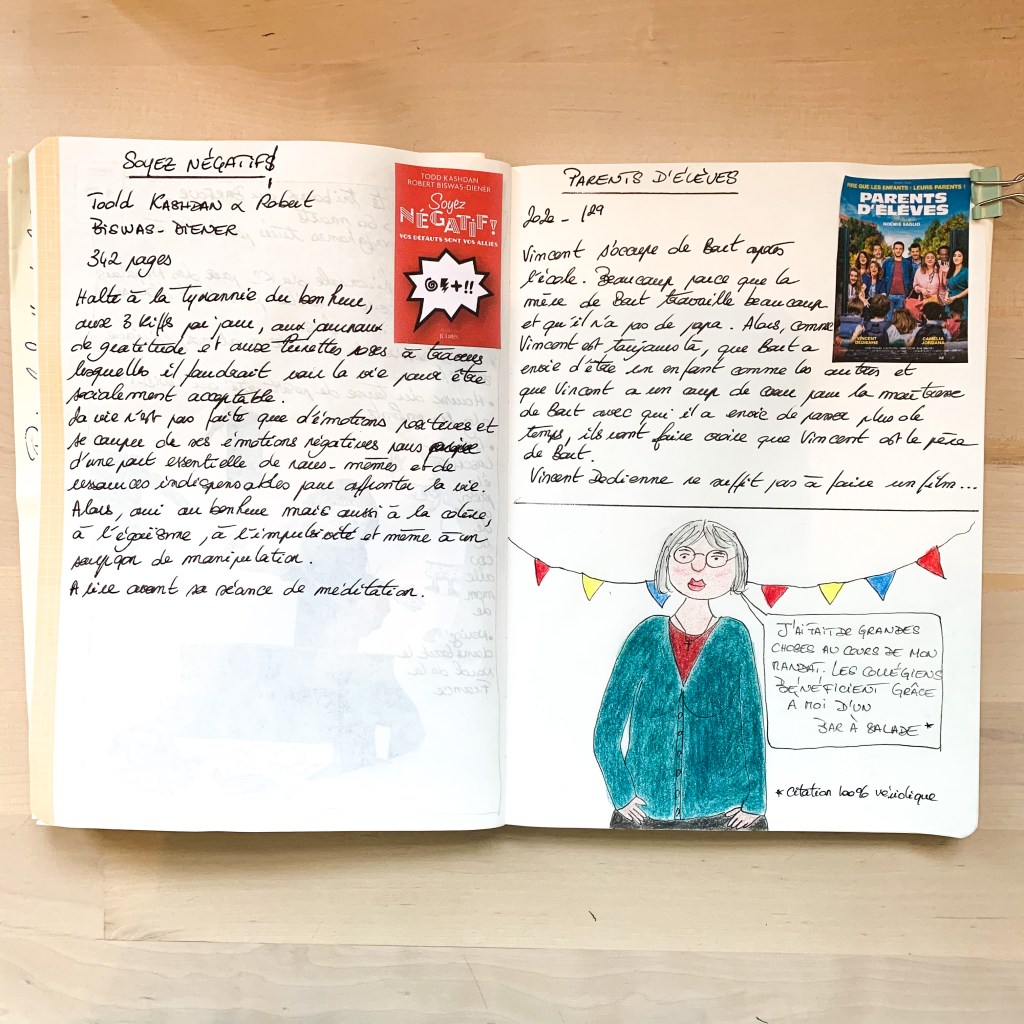 SOYEZ NÉGATIFS
Todd KASHDAN & Robert
BISWAS-DIENER
342 pages
Halte à la tyrannie du bonheur,
aux 3 kiffs par jour, aux journaux
de gratitude et aux lunettes roses à travers
lesquelles il faudrait voir la vie pour être
socialement acceptable.
La vie n'est pas faite que d'émotions positives et
se couper de ses émotions négatives nous
d'une part essentielle de nous-mêmes et de
ressources indispensables pour affronter la vie.
Alors, oui au bonheur mais aussi à la colère,
à l'égoïsme, à l'impulsivité et même à un
soupçon de manipulation.
A lire avant sa séance de méditation.
TODD KASHDAN
ROBERT BISWAS-DIENER
Soyez
NÉGATIF!
VOS DÉFAUTS SONT VOS ALLIÉS
PARENTS D'ÉLÈVES
2020 - 1h29
Vincent s'occupe de Bart après
l'école. Beaucoup parce que la
mère de Bart travaille beaucoup
et qu'il n'a pas de papa. Alors, comme
Vincent est toujours là, que Bart a
envie d'être un enfant comme les autres et
que Vincent a un coup de cœur pour la maîtresse
de Bart avec qui il a envie de passer plus de
temps, ils vont faire croire que Vincent est le père
de Bart.
Vincent Dedienne ne suffit pas à faire un film...
PIRE QUE LES ENFANTS : LEURS PARENTS !
PARENTS
D'ÉLÈVES
NOÉMIE SAGLIO
VINCENT
DEDIENNE
CAMÉLIA
JORDANA
J'AI FAIT DE GRANDES
CHOSES AU COURS DE MON
MANDAT. LES COLLÉGIENS
BÉNÉFICIENT GRÂCE
A MOI D'UN
BAR À SALADE *
* citation 100% véridique